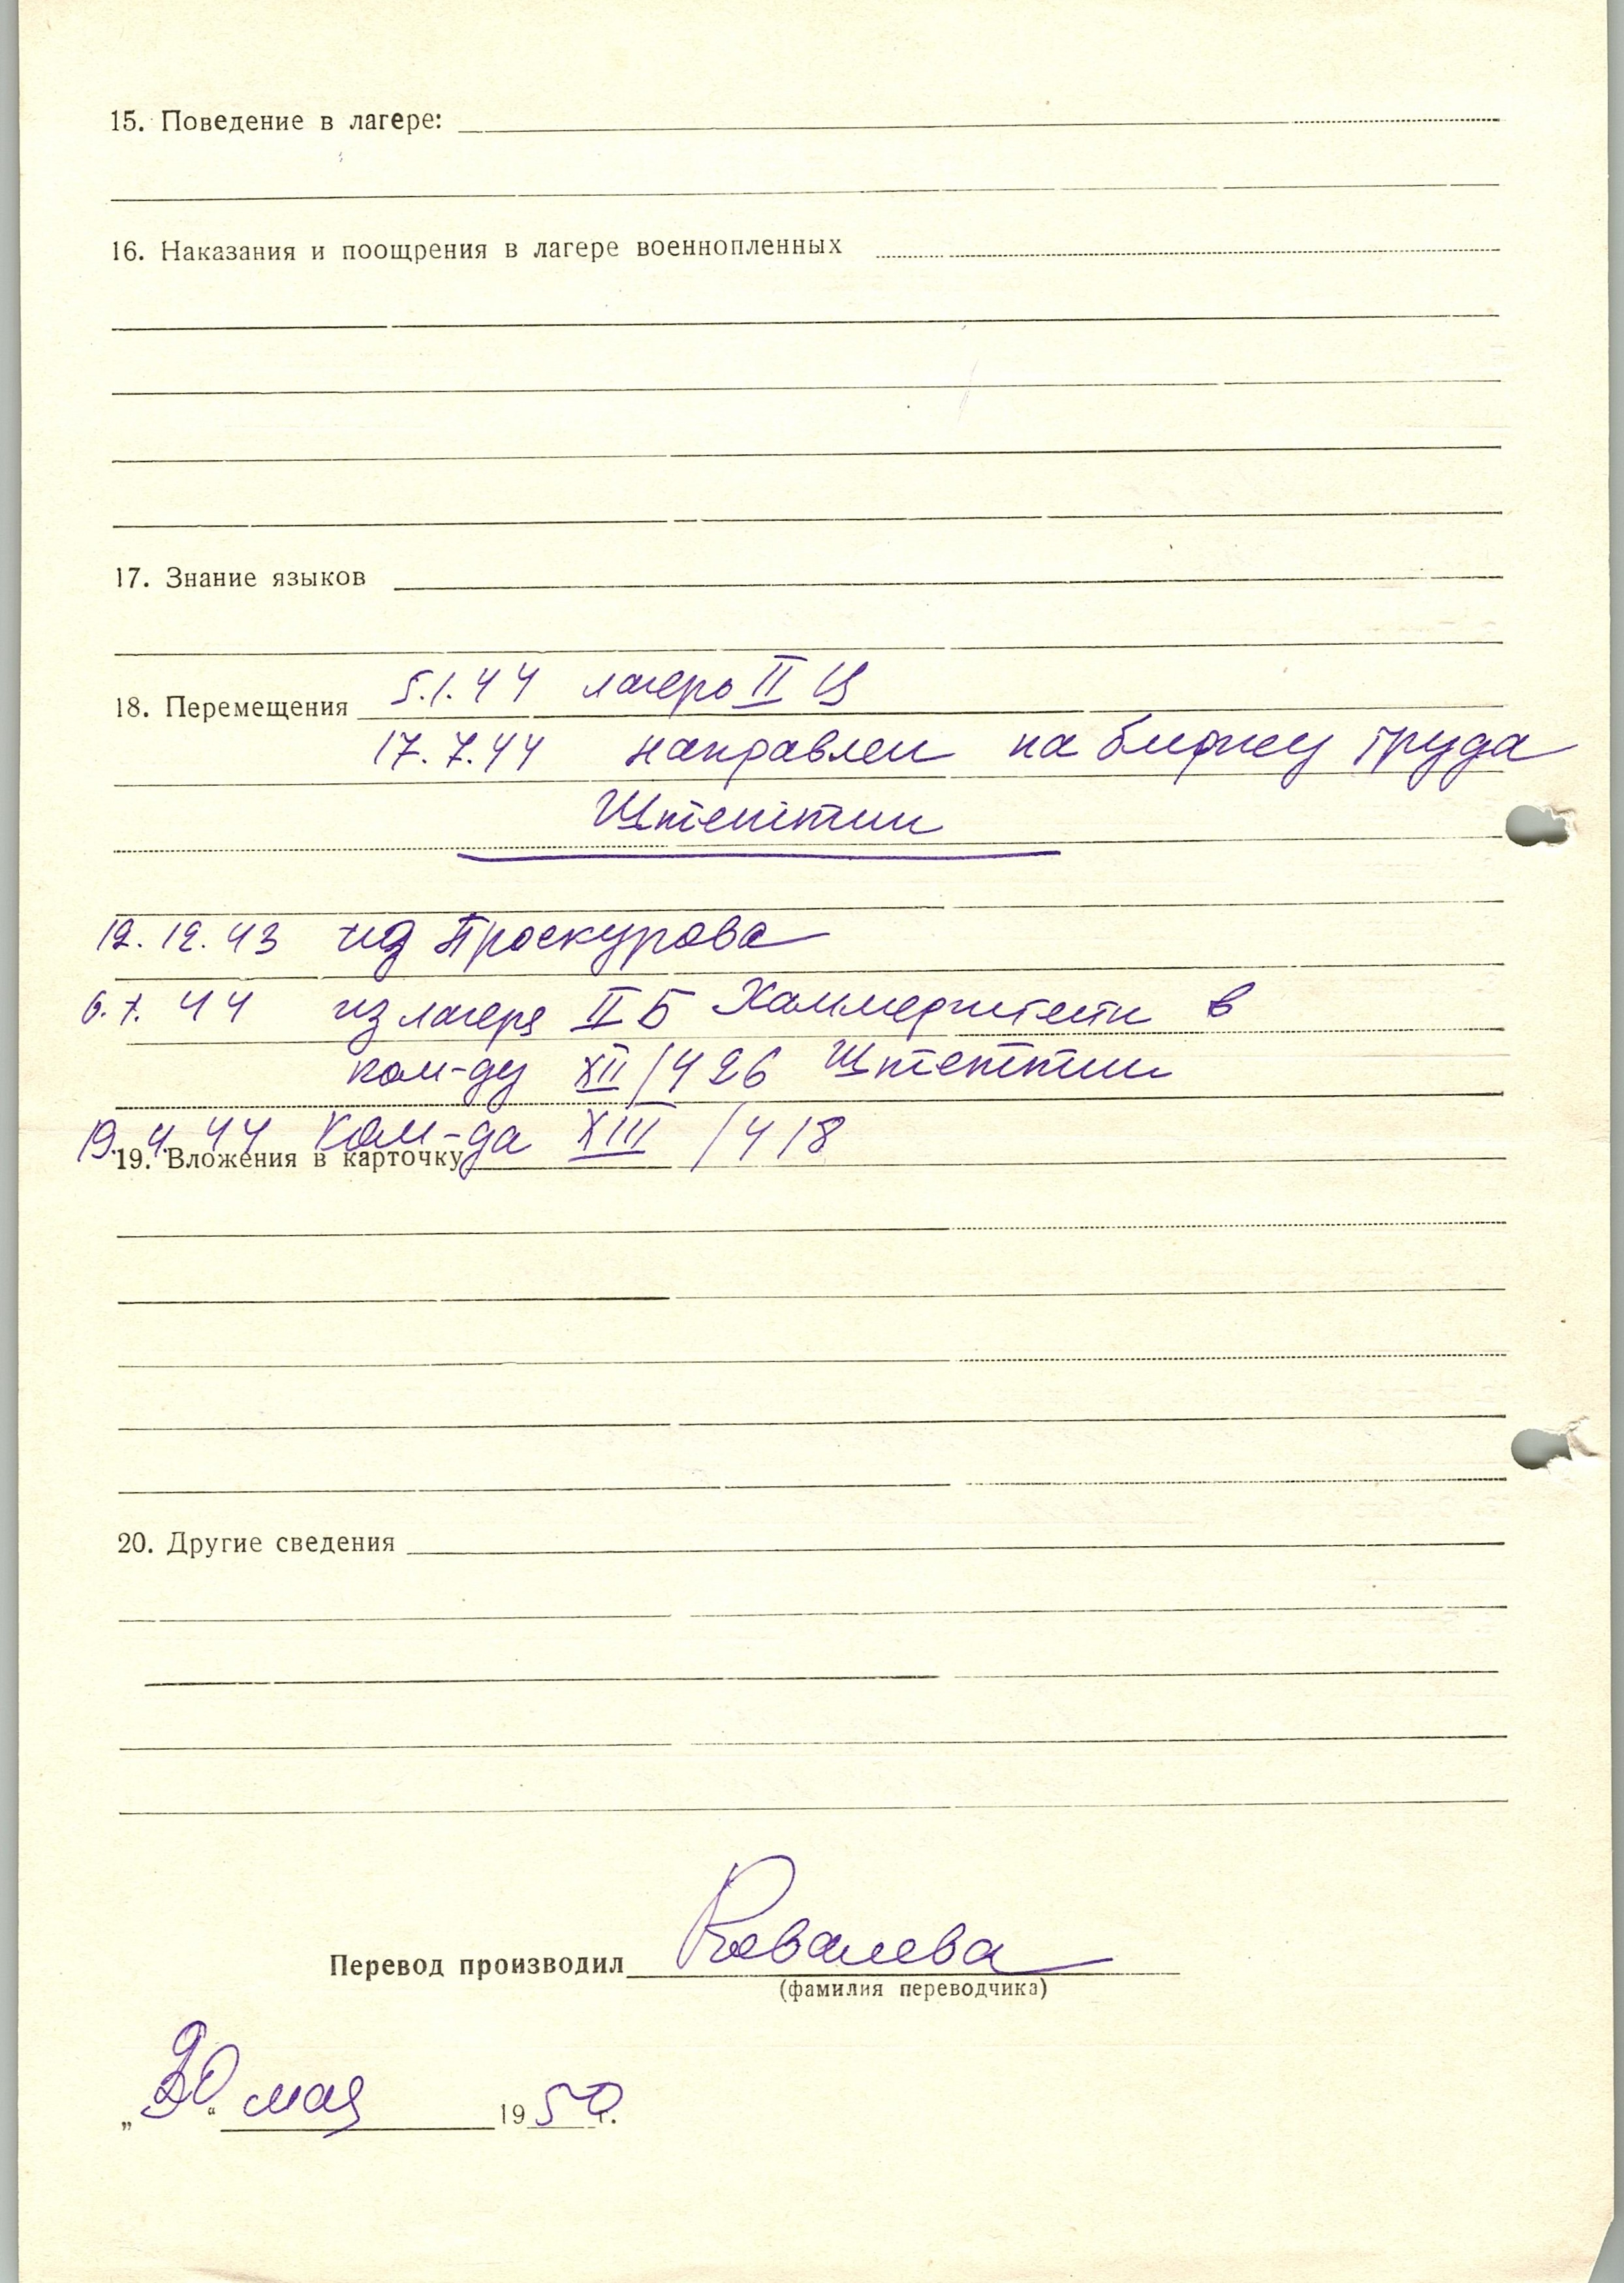 15. Поведение в лагере:
16. Наказания и поощрения в лагере военнопленных
17. Знание языков
18. Перемещения 5.1.44 лагерь II Ц
17.7.44 направлен на биржу труда
Штеттин
12.12.43 из Проскурова
6.7.44 из лагеря II Б Хаммерштейн в
ком-ду XII/426 Штеттин
19.4.44 Ком-да XIII/418
19. Вложения в карточку
20. Другие сведения
Перевод производил Ковалева
(фамилия переводчика)
„20“ мая 1950г.